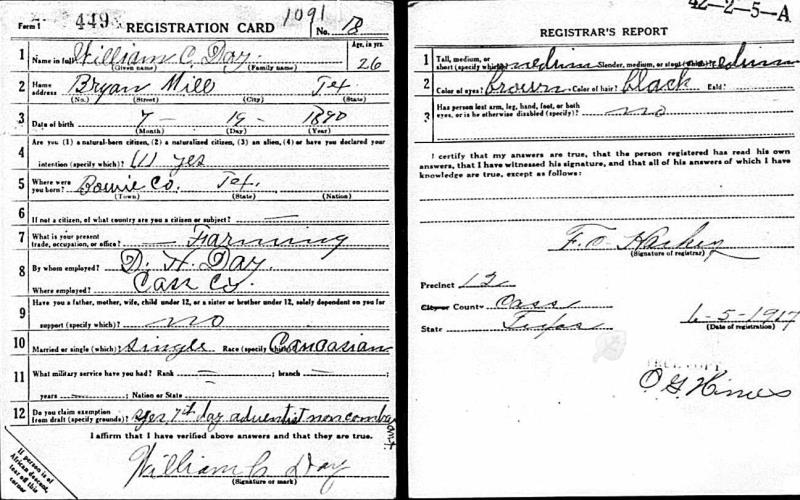 Form 1 449 REGISTRATION CARD 1091 No. 18
1 Name in full William C. Day Age, in yrs. 26
(Given name) (Family name)
2 Home address Bryan Mill Tex
(No.) (Street) (City) (State)
3 Date of birth 7 - 19 - 1890
(Month) (Day) (Year)
4 Are you (1) a natural-born citizen, (2) a naturalized citizen, (3) an alien, (4) or have you declared your
intention (specify which)? (1) yes
5 Where were you born? Bowie Co. Tex.
(Town) (State) (Nation)
6 If not a citizen, of what country are you a citizen or subject? —
7 What is your present trade, occupation, or office? — Farming
8 By whom employed? D. H. Day.
Where employed? Cass Co.
9 Have you a father, mother, wife, child under 12, or a sister or brother under 12, solely dependent on you for
support (specify which)? no
10 Married or single (which)? Single Race (specify which)? Caucasian
11 What military service have you had? Rank — ; branch —
years — ; Nation or State —
12 Do you claim exemption from draft (specify grounds)? Yes, 7th day adventist noncombatant
I affirm that I have verified above answers and that they are true.
William C Day
(Signature or mark)
If person is of
African descent,
tear off this
corner
42-2-5-A
REGISTRAR'S REPORT
1 Tall, medium, or short (specify which)? medium Slender, medium, or stout (which)? medium
2 Color of eyes? brown Color of hair? black Bald?
3 Has person lost arm, leg, hand, foot, or both
eyes, or is he otherwise disabled (specify)? no
I certify that my answers are true, that the person registered has read his own
answers, that I have witnessed his signature, and that all of his answers of which I have
knowledge are true, except as follows:
F. O.
(Signature of registrar)
Precinct 12
City or County Cass
State Texas
6-5-1917
(Date of registration)